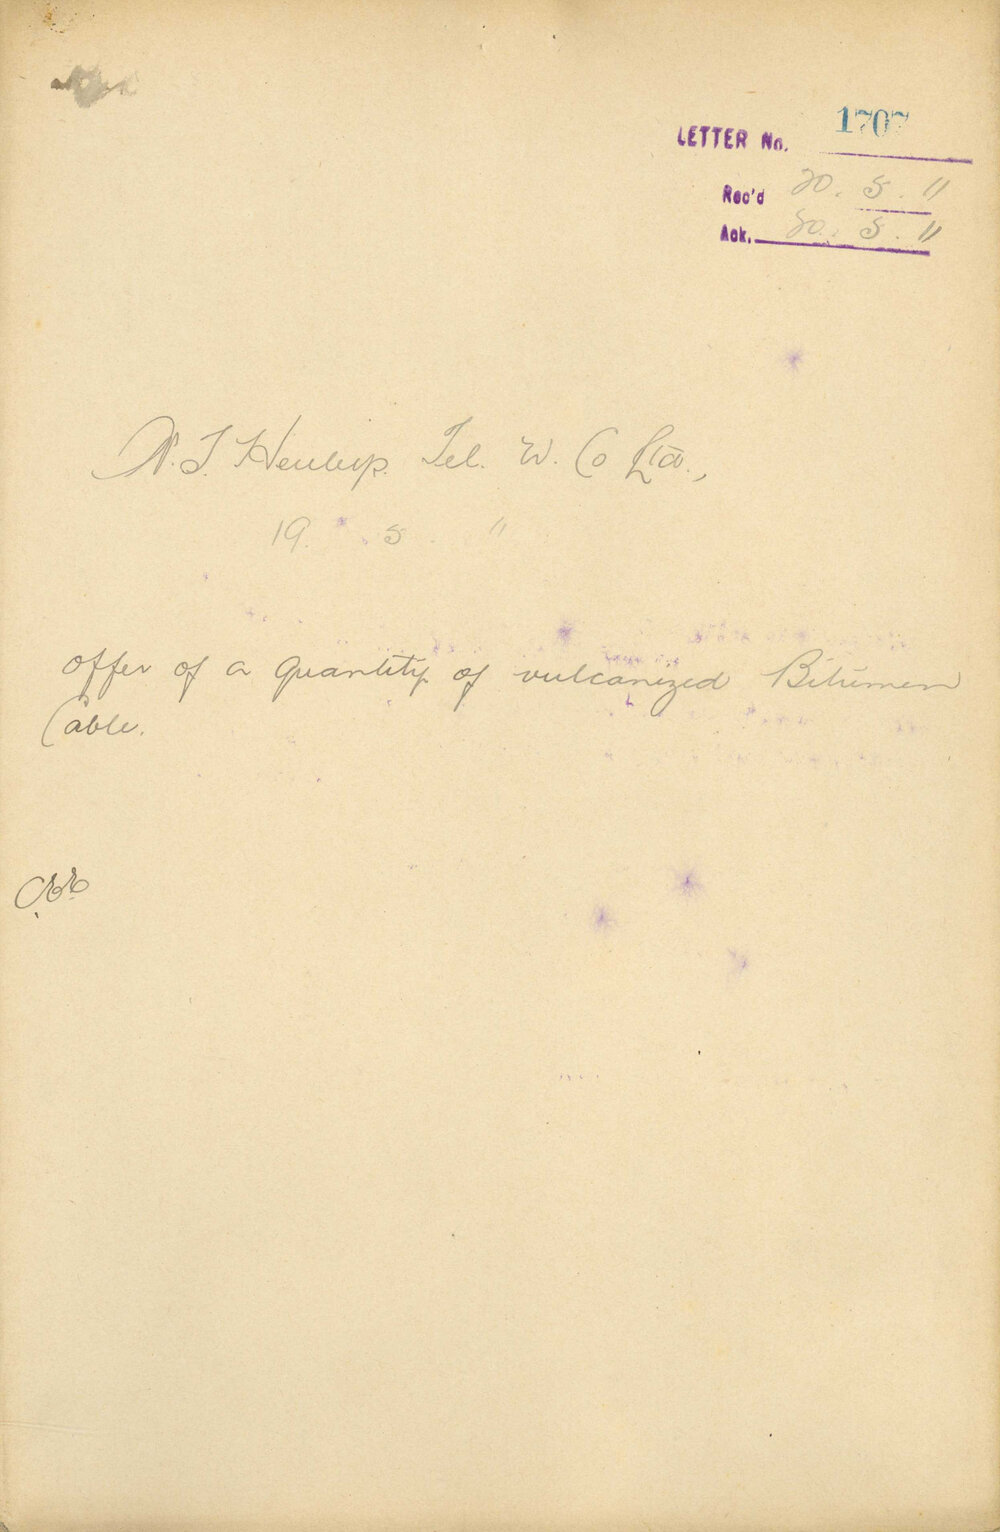 LETTER No. 1707
Rec'd 20. 5. 11
Ack. 20. 5. 11
W. T. Henleys Tel. W. Co Ltd.,
19. 5. 11
offer of a quantity of vulcanized Bitumen
Cable.